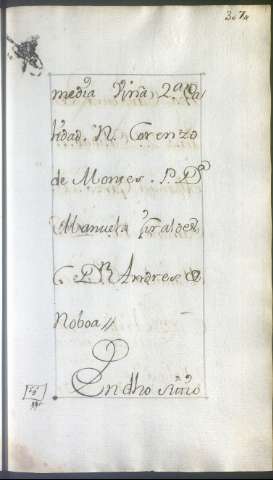 307
media Viña 2ª Ca
lidad. N. Lorenzo
de Monres. P. Dª
Manuela Giraldez
C. Dn Andres de
Noboa //
En dho sitio